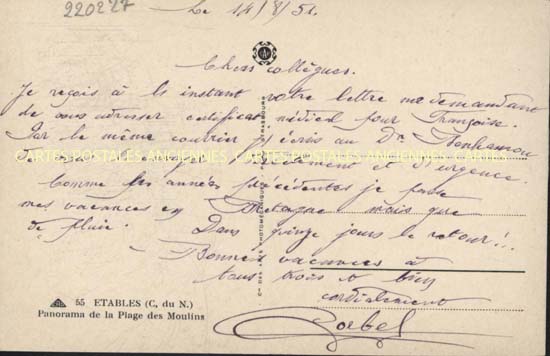 220227
Le 14/8/51.
Chers collègues.
Je reçois à l'instant votre lettre me demandant
de vous adresser certificat médical pour Françoise.
Par le même courrier j'écris au Dr
CARTES POSTALES ANCIENNES CARTES POSTALES ANCIENNES CARTES POSTALES ANCIENNES
et d'urgence
Comme les années précédentes je passe
mes vacances en Bretagne mais que
de pluie. Dans quinze jours le retour!..
Bonnes vacances à
tous trois et bien
cordialement
Goebel
55 ETABLES (C. du N.)
Panorama de la Plage des Moulins
Cie DES ARTS PHOTOMÉCANIQUES STRASBOURG